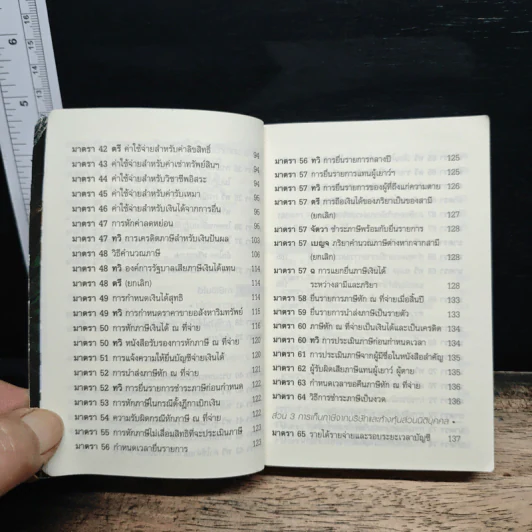 มาตรา 42 ตรี ค่าใช้จ่ายสำหรับค่าลิขสิทธิ์ 94
มาตรา 43 ค่าใช้จ่ายสำหรับค่าเช่าทรัพย์สินฯ 94
มาตรา 44 ค่าใช้จ่ายสำหรับวิชาชีพอิสระ 94
มาตรา 45 ค่าใช้จ่ายสำหรับค่ารับเหมา 95
มาตรา 46 ค่าใช้จ่ายสำหรับเงินได้จากการอื่น 95
มาตรา 47 การหักค่าลดหย่อน 96
มาตรา 47 ทวิ การเครดิตภาษีสำหรับเงินปันผล 103
มาตรา 48 วิธีคำนวณภาษี
มาตรา 48 ทวิ องค์การรัฐบาลเสียภาษีเงินได้แทน
มาตรา 48 ตรี (ยกเลิก) 114
มาตรา 49 การกำหนดเงินได้สุทธิ 114
มาตรา 49 ทวิ การกำหนดราคาขายอสังหาริมทรัพย์
มาตรา 50 การหักภาษีเงินได้ ณ ที่จ่าย
มาตรา 50 ทวิ หนังสือรับรองการหักภาษี ณ ที่จ่าย
มาตรา 51 การแจ้งความให้ยื่นบัญชีจ่ายเงินได้
มาตรา 52 การนำส่งภาษีหัก ณ ที่จ่าย
มาตรา 52 ทวิ การยื่นรายการชำระภาษีก่อนกำหนด
มาตรา 53 การหักภาษีในกรณีตั้งฎีกาเบิกเงิน
มาตรา 54 ความรับผิดกรณีหักภาษี ณ ที่จ่าย
มาตรา 55 การหักภาษีไม่เสื่อมสิทธิที่จะประเมินภาษี
มาตรา 56 กำหนดเวลายื่นรายการ 123
มาตรา 56 ทวิ การยื่นรายการกลางปี 125
มาตรา 57 การยื่นรายการแทนผู้เยาว์ฯ 125
มาตรา 57 ทวิ การยื่นรายการของผู้ที่ถึงแก่ความตาย 126
มาตรา 57 ตรี การถือเงินได้ของภริยาเป็นของสามี
(ยกเลิก) 127
มาตรา 57 จัตวา ชำระภาษีพร้อมกับยื่นรายการ 127
มาตรา 57 เบญจ ภริยาคำนวณภาษีต่างหากจากสามี
(ยกเลิก) 128
มาตรา 57 ฉ การแยกยื่นภาษีเงินได้
ระหว่างสามีและภริยา 128
มาตรา 58 ยื่นรายการภาษีหัก ณ ที่จ่ายเมื่อสิ้นปี
มาตรา 59 ยื่นรายการนำส่งภาษีเป็นรายตัว 133
มาตรา 60 ภาษีหัก ณ ที่จ่ายเป็นเงินได้และเป็นเครดิต 134
มาตรา 60 ทวิ การประเมินภาษีก่อนกำหนดเวลา 134
มาตรา 61 การประเมินจากผู้มีชื่อในหนังสือสำคัญ 135
มาตรา 62 ผู้รับผิดเสียภาษีแทนผู้เยาว์ ผู้ตาย 135
มาตรา 63 กำหนดเวลาขอคืนภาษีหัก ณ ที่จ่าย 136
มาตรา 64 วิธีการชำระภาษีเป็นงวด 136
ส่วน 3 การเก็บภาษีจากบริษัทและห้างหุ้นส่วนนิติบุคคล
มาตรา 65 รายได้รายจ่ายและรอบระยะเวลาบัญชี 137
5
6
14
15
16